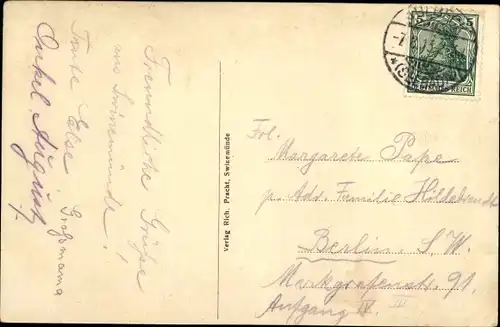 Freundliche Grüße
aus Swinemünde!
Tante Else. Großmama
Onkel August.
Verlag Rich. Pracht, Swinemünde
Frl.
Margarete Pape
p. Adr. Familie Hildebrandt
Berlin S.W.
Markgrafenstr. 91.
Aufgang IV.
5 5
REICH